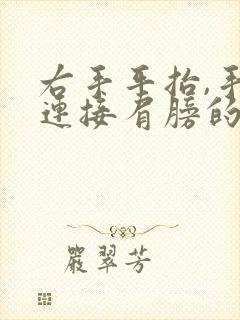 右手平抬,手
连接肩膀的
嚴翠芳